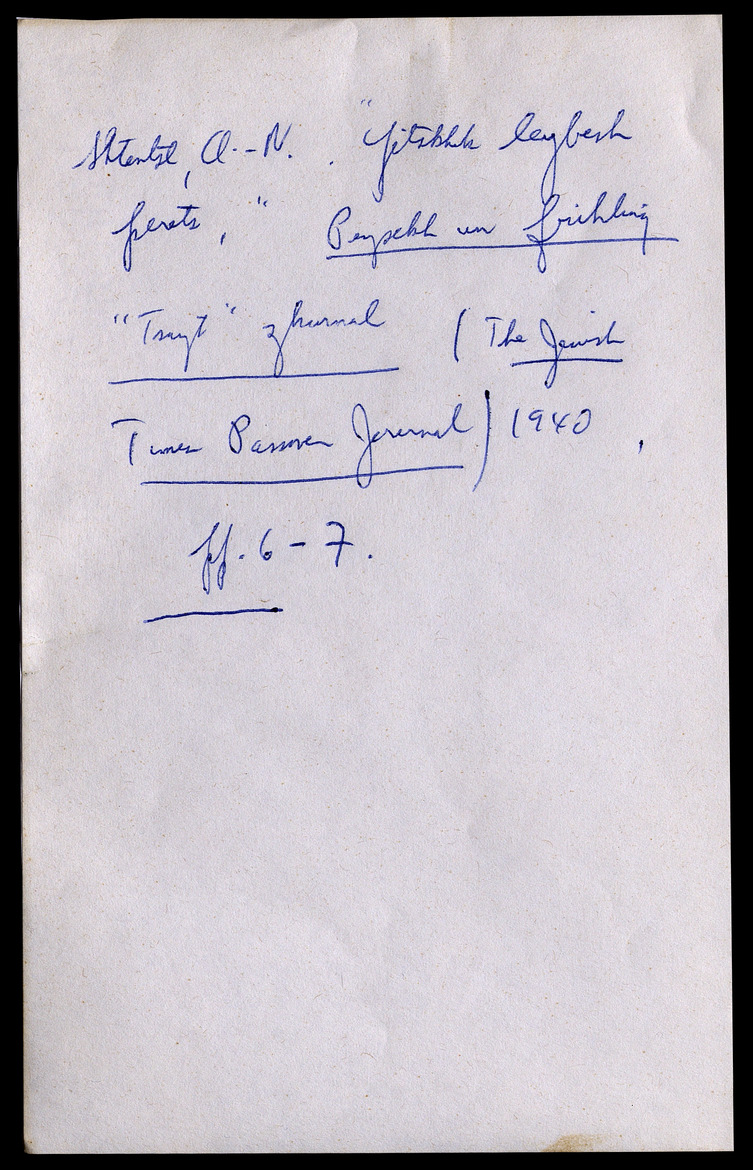 Shtentsl, A.-N. . "Yitskhk leybesh
perets," Peysekh un frihling
"Tsayt" zhurnal (The Jewish
Times Passover Journal) 1940 ,
pp. 6-7.